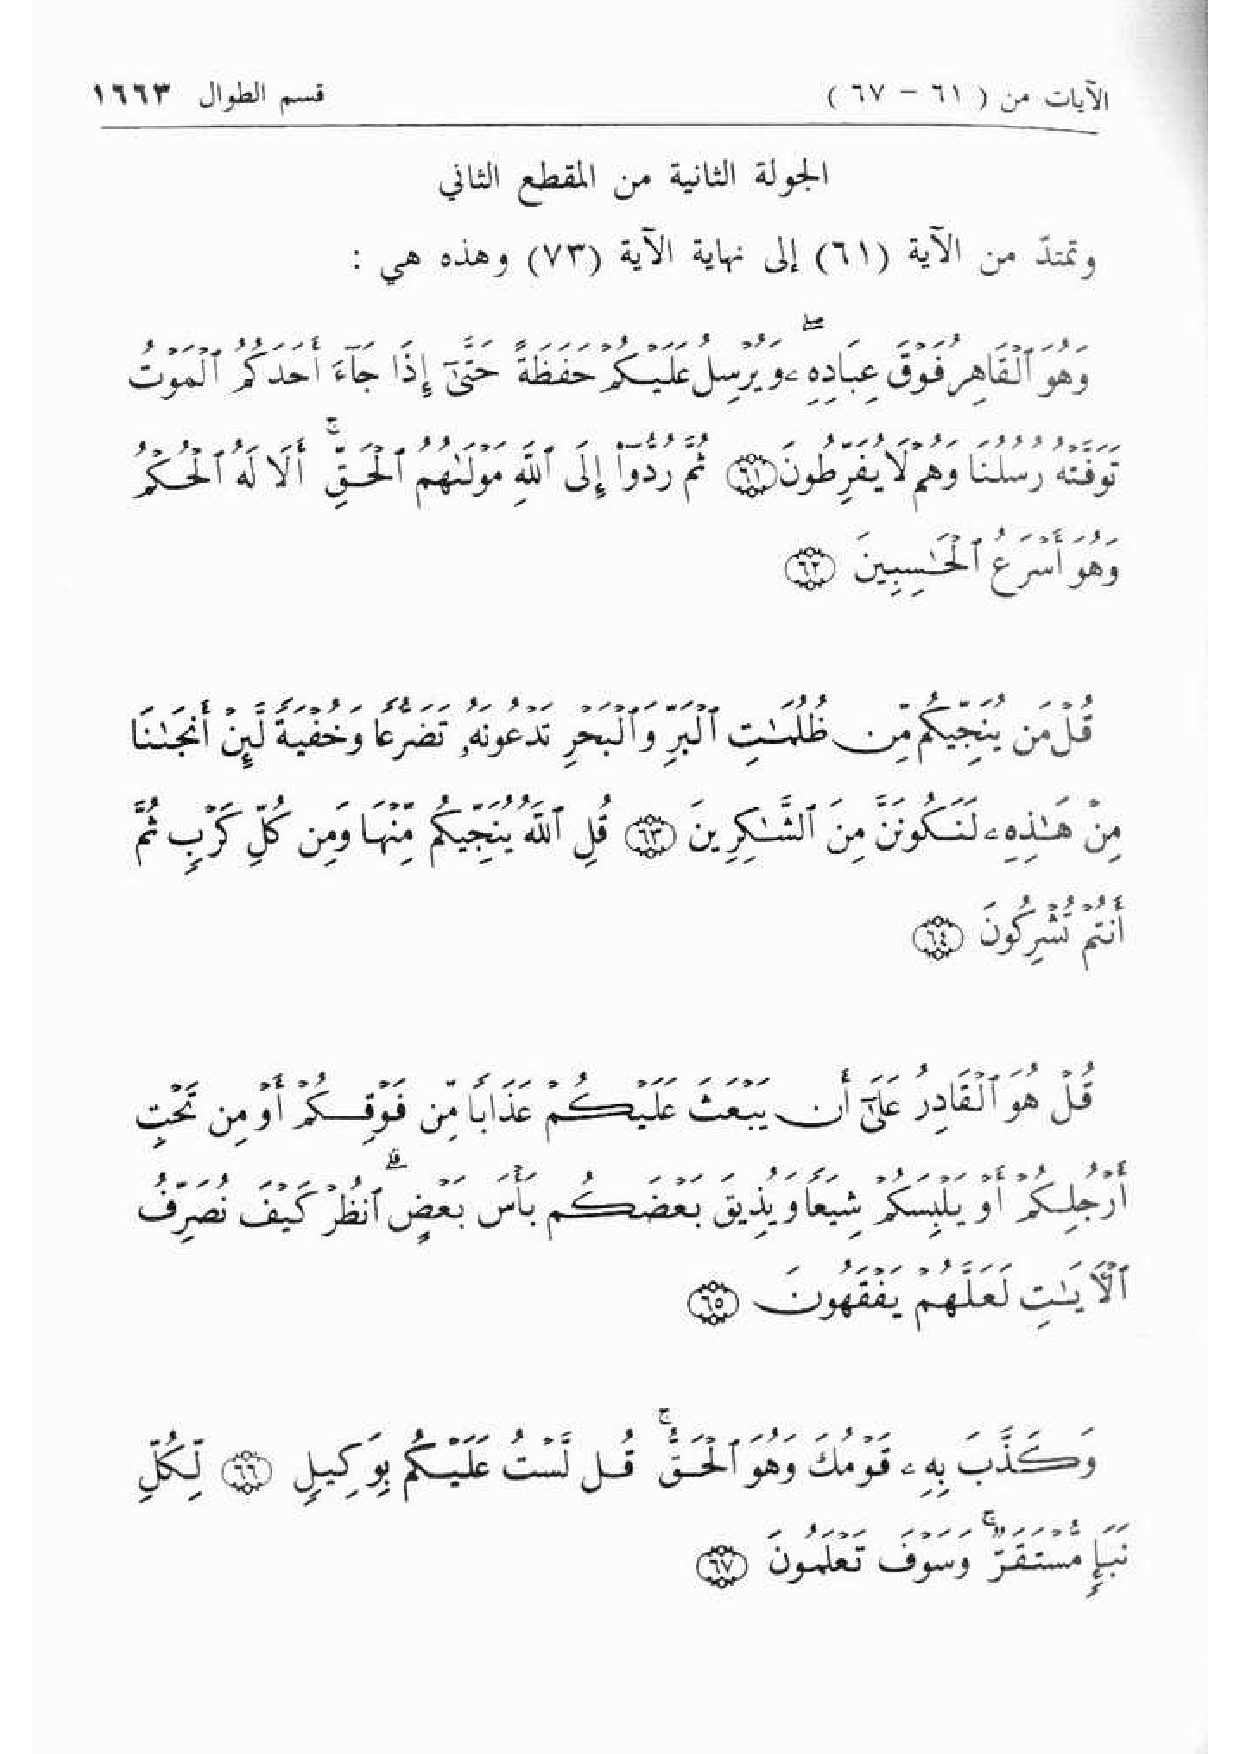 الآيات من ( ٦١ – ٦٧ ) قسم الطوال ١٦٦٣
الجولة الثانية من المقطع الثاني
وتمتدّ من الآية (٦١) إلى نهاية الآية (٧٣) وهذه هي :
وَهُوَ ٱلْقَاهِرُ فَوْقَ عِبَادِهِۦ ۖ وَيُرْسِلُ عَلَيْكُمْ حَفَظَةً حَتَّىٰٓ إِذَا جَآءَ أَحَدَكُمُ ٱلْمَوْتُ
تَوَفَّتْهُ رُسُلُنَا وَهُمْ لَا يُفَرِّطُونَ ٦١ ثُمَّ رُدُّوٓا۟ إِلَى ٱللَّهِ مَوْلَىٰهُمُ ٱلْحَقِّ ۚ أَلَا لَهُ ٱلْحُكْمُ
وَهُوَ أَسْرَعُ ٱلْحَٰسِبِينَ ٦٢
قُلْ مَن يُنَجِّيكُم مِّن ظُلُمَٰتِ ٱلْبَرِّ وَٱلْبَحْرِ تَدْعُونَهُۥ تَضَرُّعًا وَخُفْيَةً لَّئِنْ أَنجَىٰنَا
مِنْ هَٰذِهِۦ لَنَكُونَنَّ مِنَ ٱلشَّٰكِرِينَ ٦٣ قُلِ ٱللَّهُ يُنَجِّيكُم مِّنْهَا وَمِن كُلِّ كَرْبٍ ثُمَّ
أَنتُمْ تُشْرِكُونَ ٦٤
قُلْ هُوَ ٱلْقَادِرُ عَلَىٰٓ أَن يَبْعَثَ عَلَيْكُمْ عَذَابًا مِّن فَوْقِكُمْ أَوْ مِن تَحْتِ
أَرْجُلِكُمْ أَوْ يَلْبِسَكُمْ شِيَعًا وَيُذِيقَ بَعْضَكُم بَأْسَ بَعْضٍ ۗ ٱنظُرْ كَيْفَ نُصَرِّفُ
ٱلْـَٔايَٰتِ لَعَلَّهُمْ يَفْقَهُونَ ٦٥
وَكَذَّبَ بِهِۦ قَوْمُكَ وَهُوَ ٱلْحَقُّ ۚ قُل لَّسْتُ عَلَيْكُم بِوَكِيلٍ ٦٦ لِّكُلِّ
نَبَإٍ مُّسْتَقَرٌّ ۚ وَسَوْفَ تَعْلَمُونَ ٦٧